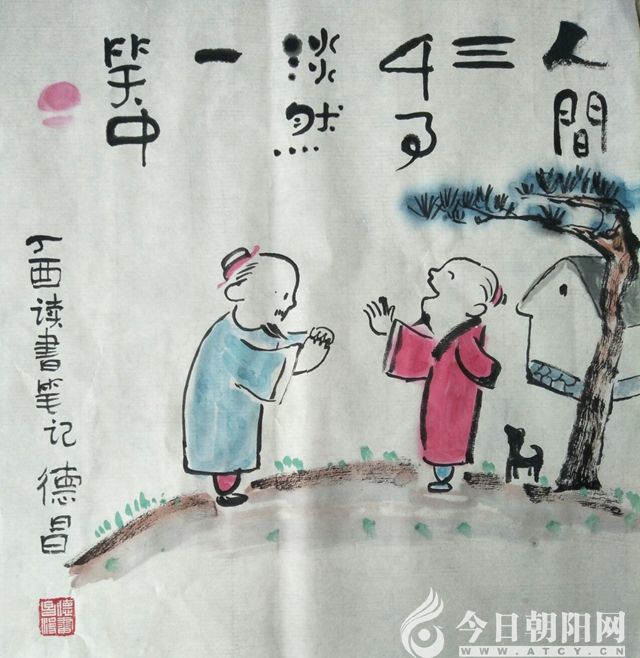 人間
三
千事
淡然
一
笑中
丁酉读書笔记 德昌
今日朝阳网
WWW.ATCY.CN